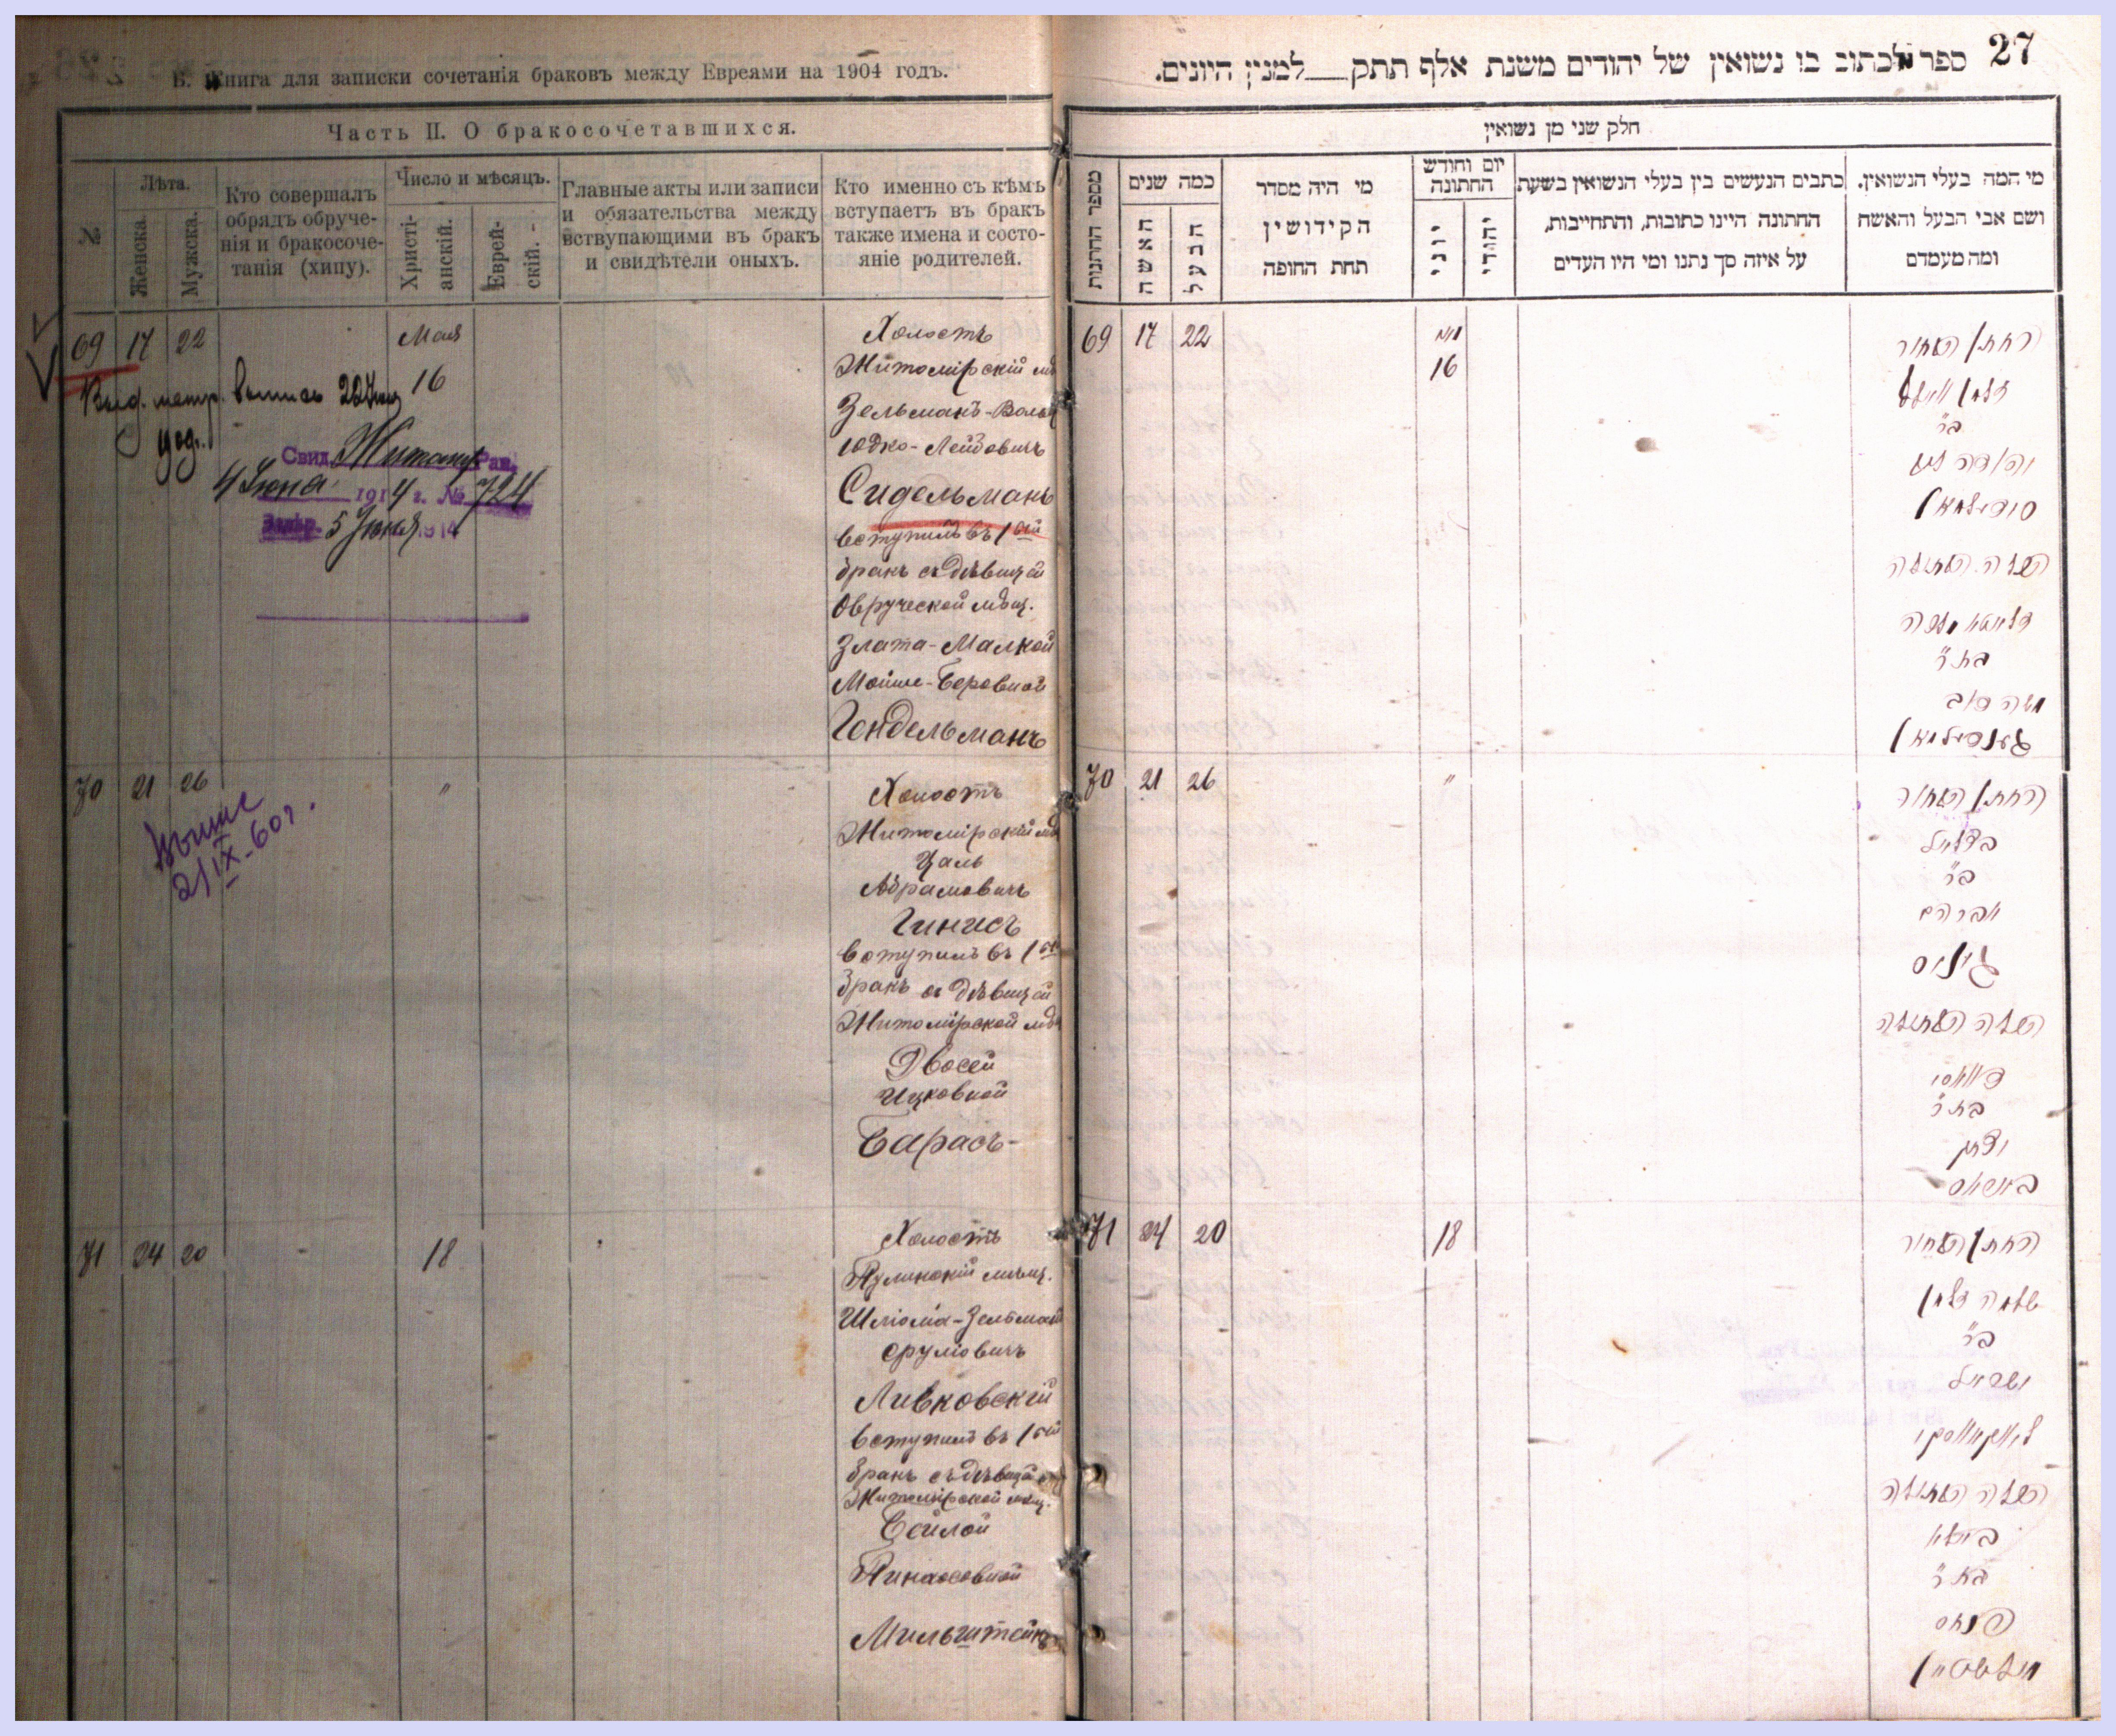 Б. Книга для записки сочетанія браковъ между Евреями на 1904 годъ.
Часть II. О бракосочетавшихся.
№
Лѣта.
Женска.
Мужска.
Кто совершалъ
обрядъ обруче-
нія и бракосоче-
танія (хипу).
Число и мѣсяцъ.
Христі-
анскій.
Еврей-
скій.
Главные акты или записи
и обязательства между
вствупающими въ бракъ
и свидѣтели оныхъ.
Кто именно съ кѣмъ
вступаетъ въ бракъ
также имена и состо-
яніе родителей.
69 17 22 Мая 16
Выд. метр. выпись
Свид. Житомир Рав.
4 Іюня 1914 г. № 724
5 Іюня 1914
Холостъ
Житомірскій мѣ
Зельманъ-Вольф
Юдко-Лейбовичъ
Сидельманъ
вступилъ въ 1ый
бракъ съ дѣвицей
Овручской мѣщ.
Злата-Малкой
Мойше-Беровной
Гендельманъ
70 21 26 "
2/IX-60 г.
Холостъ
Житомірскій мѣ
Цаль
Абрамовичъ
Гинисъ
вступилъ въ 1ый
бракъ съ дѣвицей
Житомірской мѣ
Двосей
Ицковной
Барасъ
71 24 20 18
Холостъ
Пулинскій мѣщ.
Шліома-Зельман
Сруліовичъ
Ливковскій
вступилъ въ 1ый
бракъ съ дѣвицей
Житомірской мѣщ.
Бейлой
Пинхосовной
Мильштейнъ
27
ספר לכתוב בו נשואין של יהודים משנת אלף תתק למנין היונים.
חלק שני מן נשואין
מספר החתנות
כמה שנים
האשה
הבעל
מי היה מסדר
הקידושין
תחת החופה
יום וחודש
החתונה
יוני
יהודי
כתבים הנעשים בין בעלי הנשואין בשעת
החתונה היינו כתובות, והתחייבות,
על איזה סך נתנו ומי היו העדים
מי המה בעלי הנשואין.
ושם אבי הבעל והאשה
ומה מעמדם
69 17 22 מאי 16
החתן הבחור
זלמן וואלף
בר
יהודה ליב
סידעלמאן
הכלה הבתולה
זלאטא מלכה
בת ר
משה בער
גענדעלמאן
70 21 26 "
החתן הבחור
בצלאל
בר
אברהם
גיניס
הכלה הבתולה
דוואסי
בת ר
יצחק
באראס
71 24 20 18
החתן הבחור
שלמה זלמן
בר
ישראל
ליווקאווסקי
הכלה הבתולה
ביילא
בת ר
פנחס
מילשטיין